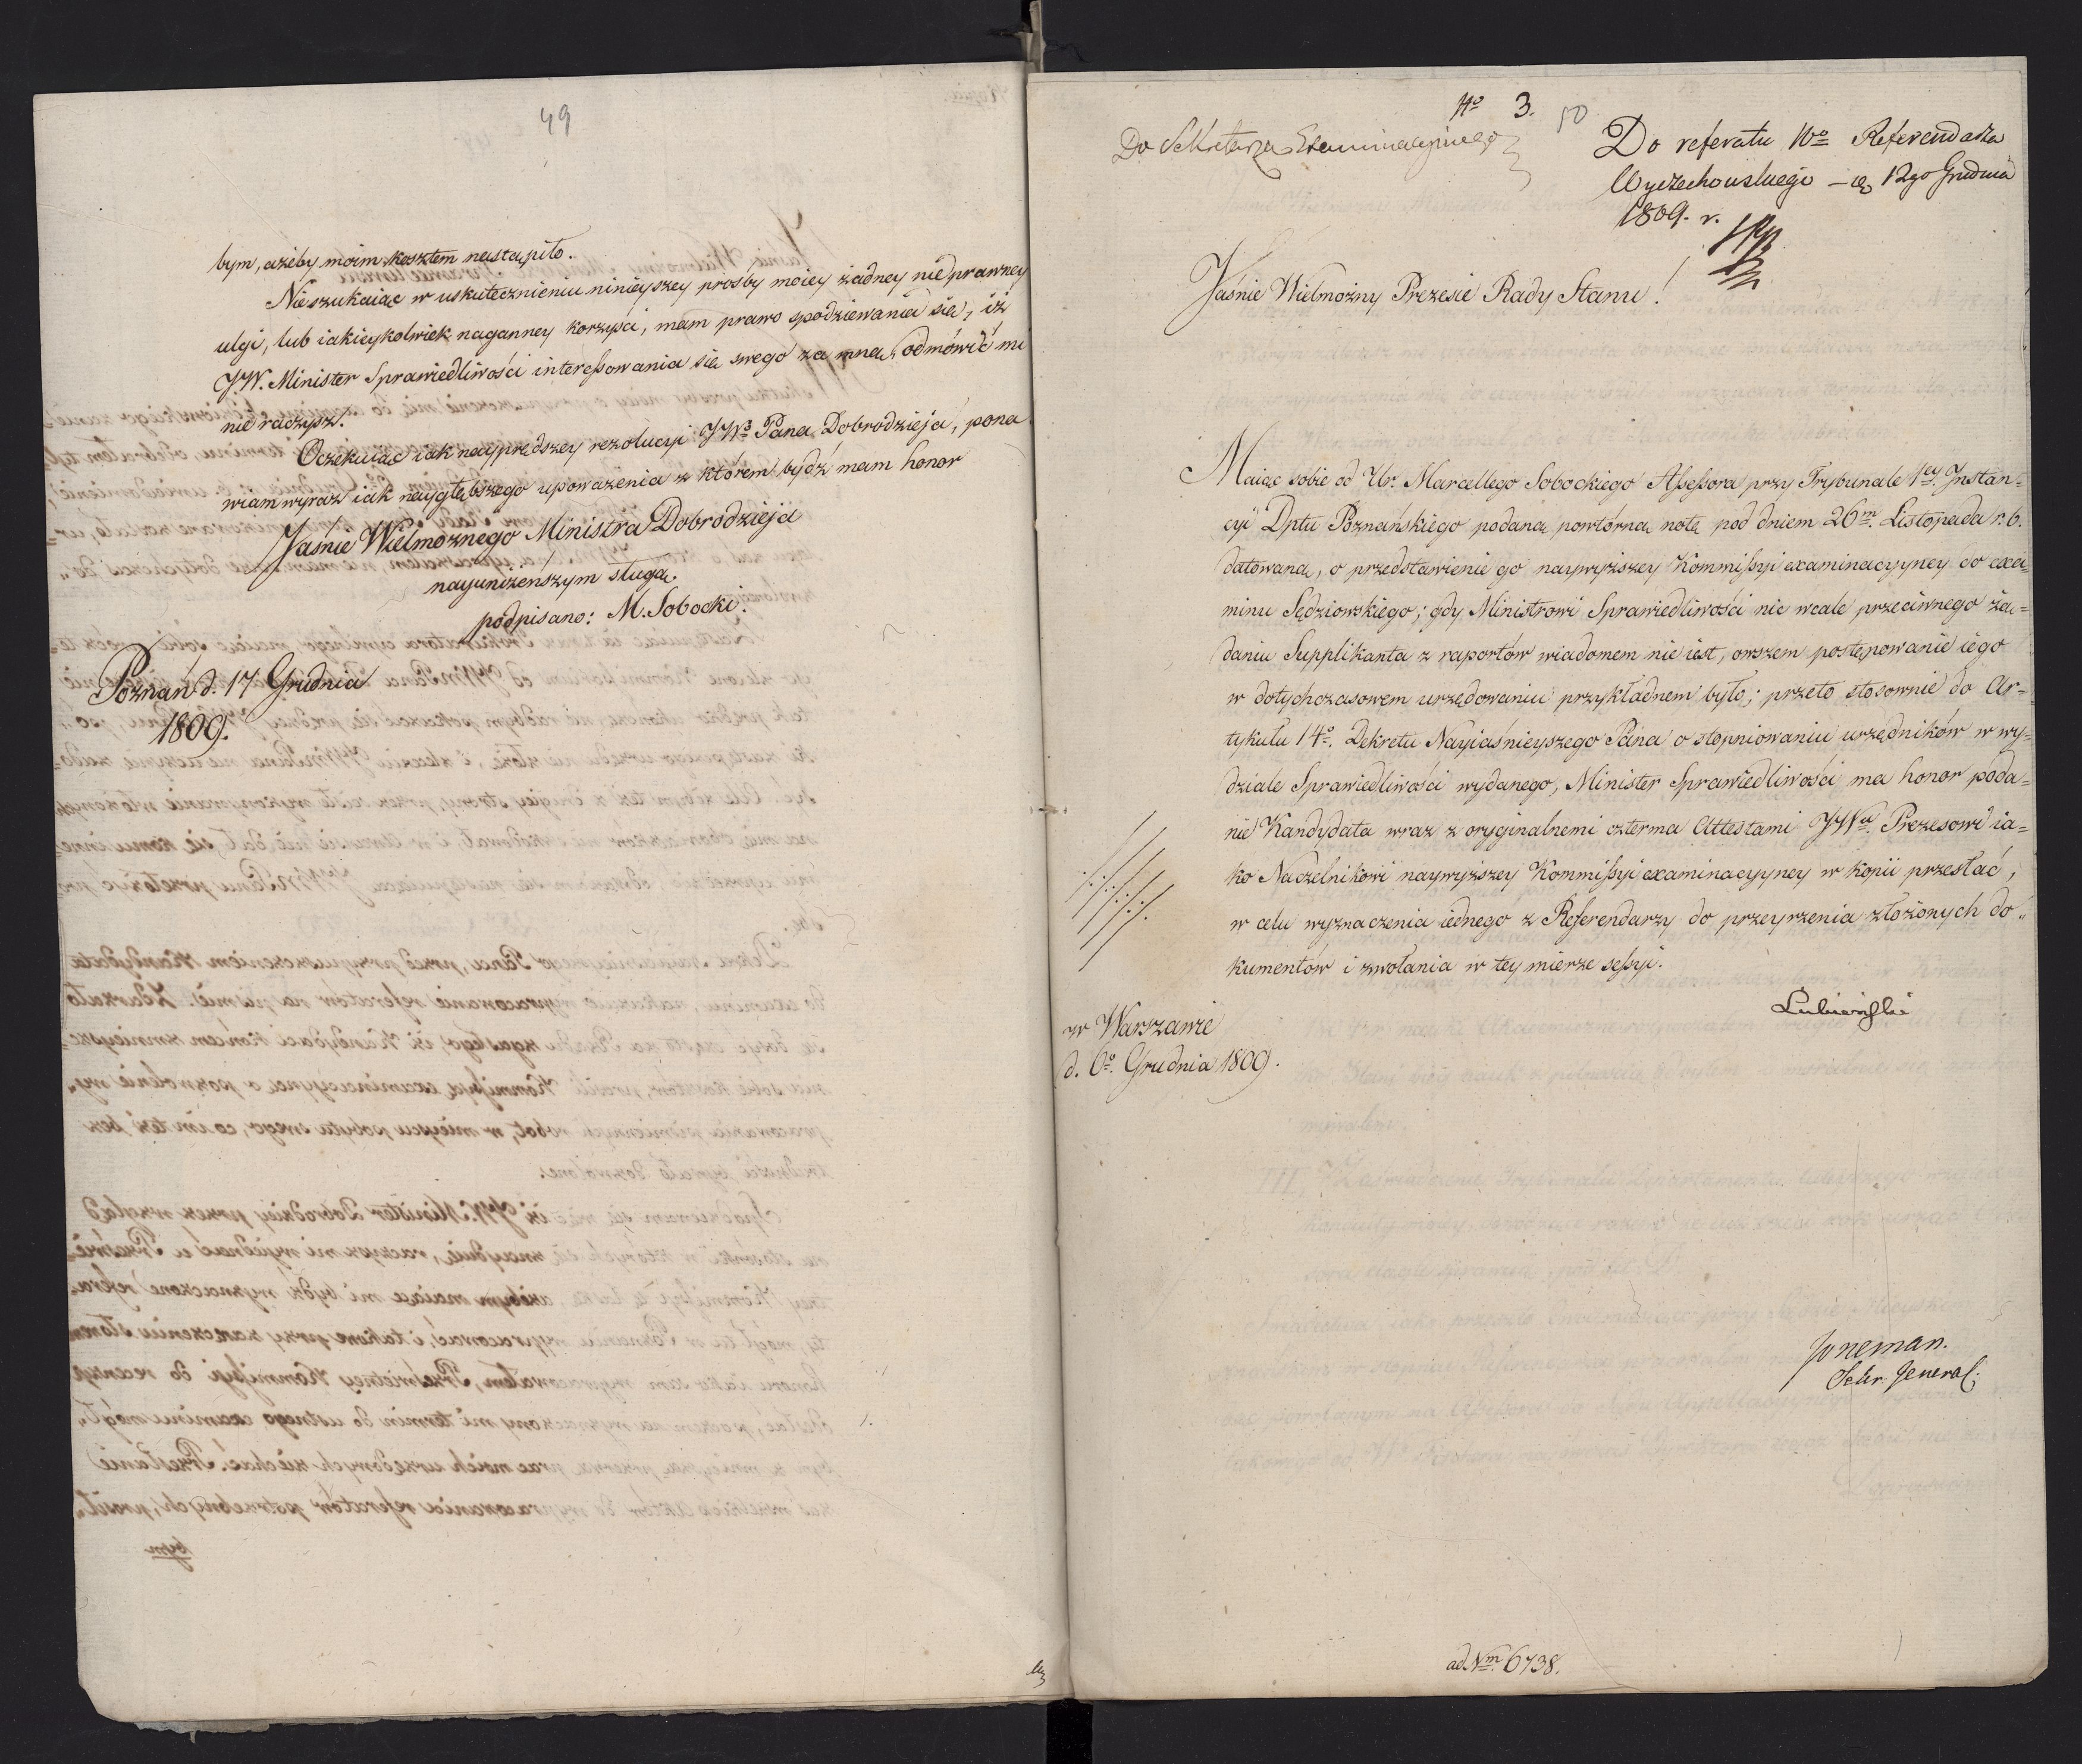 49
bym, ażeby moim kosztem nastąpiło.
Nieszukaiąc w uskutecznieniu ninieyszey prośby moiey żadney nieprawney
ulgi, lub iakieykolwiek naganney korzyści, mam prawo spodziewania się, iż
JW. Minister Sprawiedliwości interessowania się swego za mną, odmówić mi
nie raczysz.
Oczekuiąc iak nayprędszey rezolucyi JWo Pana Dobrodzieja, pona
wiam wyraz iak naygłębszego upoważenia z którem bydź mam honor
Jaśnie Wielmożnego Ministra Dobrodzieja
nayuniżeńszym sługą.
podpisano: M. Sobocki.
Poznań d. 17 Grudnia
1809.
No 3.
50
Do Sekretarza Examinacyinego
Do referatu Wo Referendarza
Wyczechowskiego 12go Grudnia
1809. r.
Jaśnie Wielmożny Prezesie Rady Stanu!
Maiąc sobie od Ur. Marcellego Sobockiego Assessora przy Trybunale 1ey Instan=
cyi Dptu Poznańskiego podaną powtórną notę pod dniem 26m. Listopada r. b.
datowaną, o przedstawienie go naywyższey Kommissyi examinacyyney do exa=
minu Sędziowskiego; gdy Ministrowi Sprawiedliwości nic wcale przeciwnego żą=
daniu Supplikanta z raportów wiadomem nie iest, owszem postępowanie iego
w dotychczasowem urzędowaniu przykładnem było; przeto stosownie do Ar=
tykułu 14o. Dekretu Nayiaśnieyszego Pana o stopniowaniu urzędników w wy=
dziale Sprawiedliwości wydanego, Minister Sprawiedliwości ma honor poda=
nie Kandydata wraz z oryginalnemi czterma Attestami JWu Prezesowi ia=
ko Naczelnikowi naywyższey Kommissyi examinacyyney w kopii przesłać,
w celu wyznaczenia iednego z Referendarzy do przeyrzenia złożonych do„
kumentów i zwołania w tey mierze sessyi.
Lubieński
w Warszawie
d. 6o. Grudnia 1809.
Joneman.
Sekr. Jeneral.
ad Nm 6738.